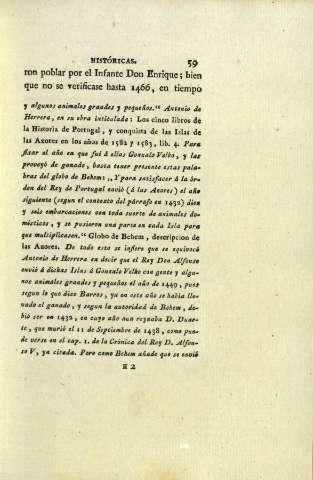 HISTÓRICAS. 59
ron poblar por el Infante Don Enrique; bien
que no se verificase hasta 1466, en tiempo
y algunos animales grandes y pequeños." Antonio de
Herrera, en su obra intitulada: Los cinco libros de
la Historia de Portugal, y conquista de las Islas de
las Azores en los años de 1582 y 1583, lib. 4. Para
fixar el año en que fué á ellas Gonzalo Velho, y las
proveyó de ganado, basta tener presente estas pala-
bras del globo de Behem: „Y para satisfacer á la ór-
den del Rey de Portugal envió (á las Azores) el año
siguiente (segun el contexto del párrafo en 1432) diez
y seis embarcaciones con toda suerte de animales do-
mésticos, y se pusieron una parte en cada Isla para
que multiplicasen." Globo de Behem, descripcion de
las Azores. De todo esto se infiere que se equivocó
Antonio de Herrera en decir que el Rey Don Alfonso
envió á dichas Islas á Gonzalo Velho con gente y algu-
nos animales grandes y pequeños el año de 1449, pues
segun lo que dice Barros, ya en este año se habia lle-
vado el ganado, y segun la autoridad de Behem, de-
bió ser en 1432, en cuyo año aun reynaba D. Duar-
te, que murió el 11 de Septiembre de 1438, como pue-
de verse en el cap. 1. de la Crónica del Rey D. Alfon-
so V, ya citada. Pero como Behem añade que se envió
H 2